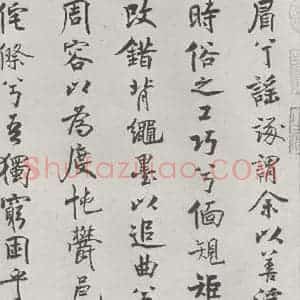 眉兮謠諑謂余以善淫
時俗之工巧兮偭規矩
改錯背繩墨以追曲兮
周容以為度忳鬱邑
侘傺兮吾獨窮困乎
Shufaziliao.com